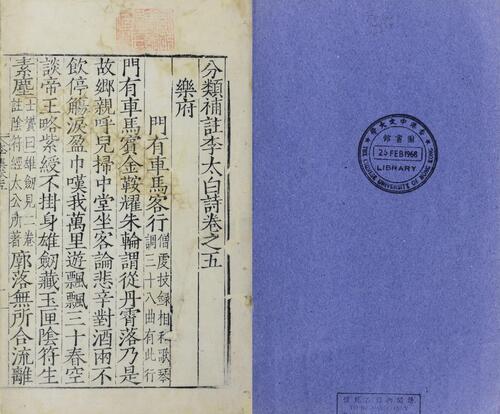 分類補註李太白詩卷之五
樂府
門有車馬客行 僧虔技録相和歌琴調三十八曲有此行
門有車馬賓金鞍耀朱輪謂從丹霄落乃是
故鄉親呼兒掃中堂坐客論悲辛對酒兩不
飲停觴淚盈巾嘆我萬里遊飄飄三十春空
談帝王略紫綬不掛身雄劒藏玉匣陰符生
素塵士贇曰雄劒見二卷註陰符經太公所著廓落無所合流離
香港中文大學
圖書館
26 FEB 1968
LIBRARY
THE CHINESE UNIVERSITY OF HONG KONG